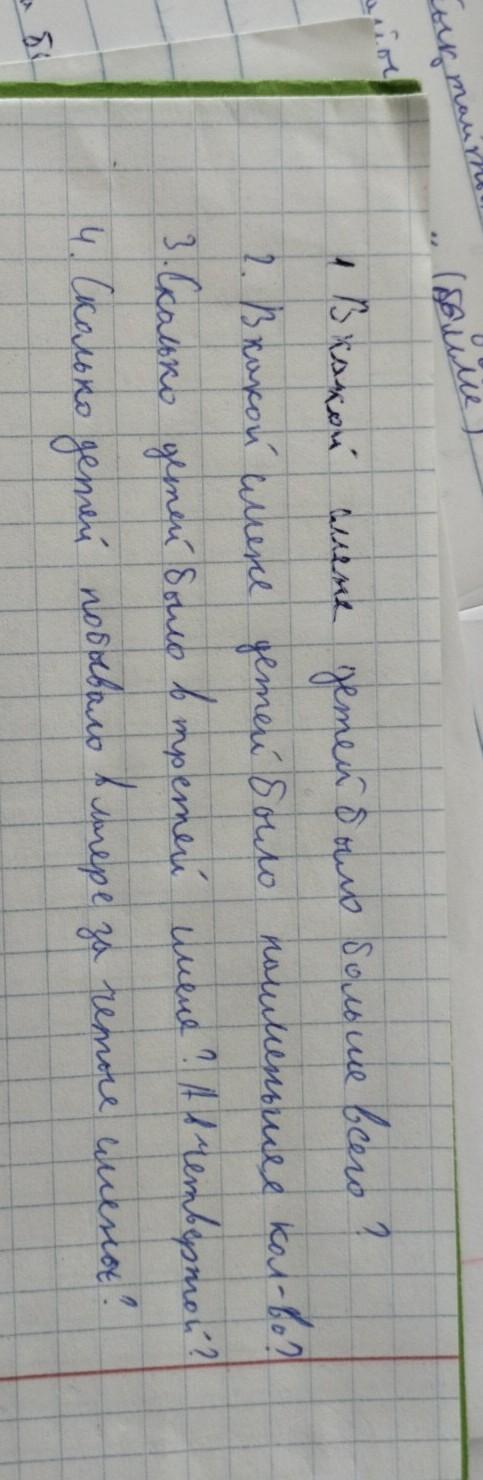 1 В какой смене детей было больше всего?
2. В какой смене детей было наименьшее кол-во?
3. Сколько детей было в третей смене? А в четвертой?
4. Сколько детей побывало в лагере за четыре смены?
(больше)